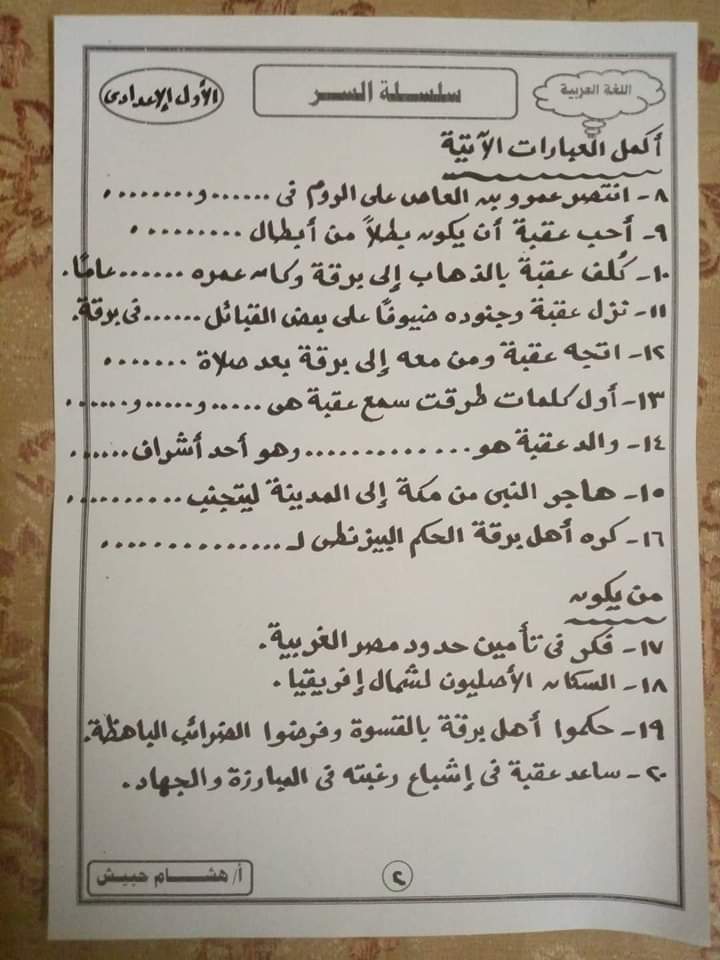 اللغة العربية
سلسلة السر
الأول الإعدادى
أكمل العبارات الآتية
٨- انتصر عمرو بن العاص على الروم فى ...... و........ .
٩- أحب عقبة أن يكون بطلاً من أبطال ......... .
١٠- كُلف عقبة بالذهاب إلى برقة وكان عمره ...... عامًا.
١١- نزل عقبة وجنوده ضيوفًا على بعض القبائل ...... فى برقة.
١٢- اتجه عقبة ومن معه إلى برقة بعد صلاة ....... .
١٣- أول كلمات طرقت سمع عقبة هى ..... و..... و...... .
١٤- والد عقبة هو ............ وهو أحد أشراف ......
١٥- هاجر النبى من مكة إلى المدينة ليتجنب .......... .
١٦- كره أهل برقة الحكم البيزنطى لـ ............... .
من يكون
١٧- فكر فى تأمين حدود مصر الغربية.
١٨- السكان الأصليون لشمال إفريقيا.
١٩- حكموا أهل برقة بالقسوة وفرضوا الضرائب الباهظة.
٢٠- ساعد عقبة فى إشباع رغبته فى المبارزة والجهاد.
٢
أ/ هشام حبيش